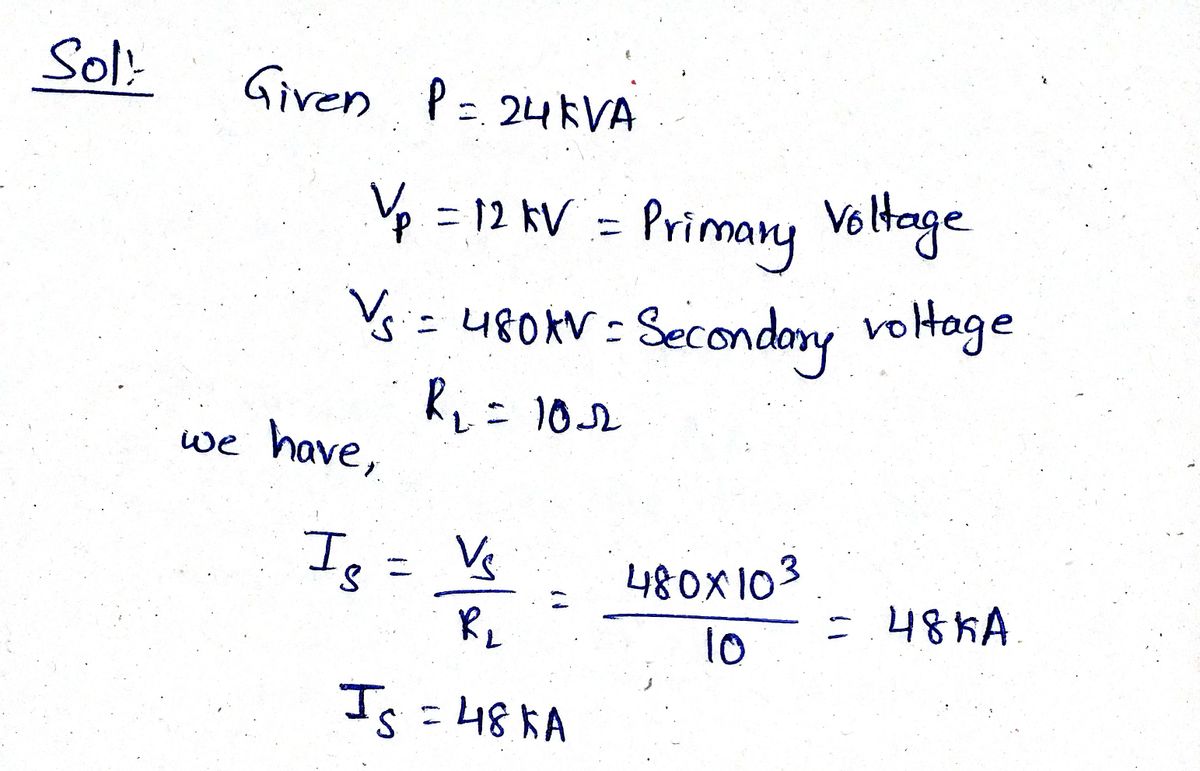 Sol:-
Given P = 24 KVA
Vp = 12 KV = Primary Voltage
Vs = 480KV = Secondary voltage
RL = 10Ω
we have,
Is = Vs / RL = 480×10³ / 10 = 48 KA
Is = 48 KA